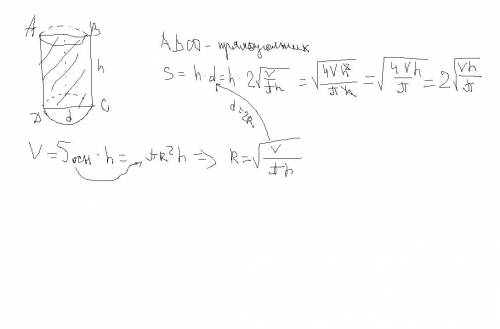 A B
h
D d C
ABCD - прямоугольник
S = h·d = h·2√(V/πh) = √(4Vh²/πh) = √(4Vh/π) = 2√(Vh/π)
d=2R
V = Sосн·h = πR²h => R = √(V/πh)